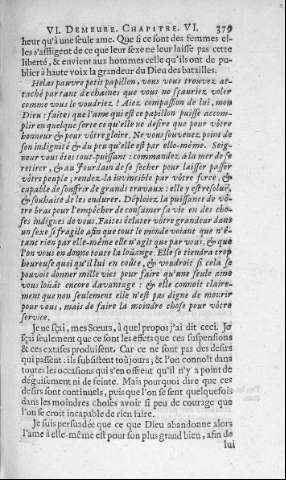 VI. DEMEURE. CHAPITRE. VI. 379
heur qu'à une seule ame. Que si ce sont des femmes el-
les s'affligent de ce que leur sexe ne leur laisse pas cette
liberté, & envient aux hommes celle qu'ils ont de pu-
blier à haute voix la grandeur du Dieu des batailles.
Helas pauvre petit papillon, vous vous trouvez at-
taché par tant de chaînes que vous ne sçauriez voler
comme vous le voudriez ! Aiez compassion de lui, mon
Dieu : faites que l'ame qui est ce papillon puisse accom-
plir en quelque sorte ce qu'elle ne desire que pour vôtre
honneur & pour vôtre gloire. Ne vous souvenez point de
son indignité & du peu qu'elle est par elle-même. Seig-
neur vous êtes tout-puissant : commandez à la mer de se
retirer, & au Jourdain de se secher pour laisser passer
vôtre peuple ; rendez-la invincible par vôtre force, &
capable de souffrir de grands travaux : elle y est resoluë,
& souhaite de les endurer. Déploiez la puissance de vô-
tre bras pour l'empêcher de consumer sa vie en des cho-
ses indignes de vous. Faites éclater vôtre grandeur dans
un sexe si fragile afin que tout le monde voiant que n'é-
tant rien par elle-même elle n'agit que par vous, & que
l'on vous en donne toute la loüange. Elle se tiendra trop
heureuse quoi qu'il lui en coûte, & voudroit si cela se
pouvoit donner mille vies pour faire qu'une seule ame
vous loüât encore davantage : & elle connoît claire-
ment que non seulement elle n'est pas digne de mourir
pour vous, mais de faire la moindre chose pour vôtre
service.
Je ne sçai, mes Sœurs, à quel propos j'ai dit ceci. Je
sçai seulement que ce sont les effets que ces suspensions
& ces extases produisent. Car ce ne sont pas des desirs
qui passent : ils subsistent toûjours, & l'on connoît dans
toutes les occasions qui s'en offrent qu'il n'y a point de
déguisement ni de feinte. Mais pourquoi dire que ces
desirs sont continuels, puis que l'on se sent quelquefois
dans les moindres choses avoir si peu de courage que
l'on se croit incapable de rien faire.
Je suis persuadée que ce que Dieu abandonne alors
l'ame à elle-même est pour son plus grand bien, afin de
lui